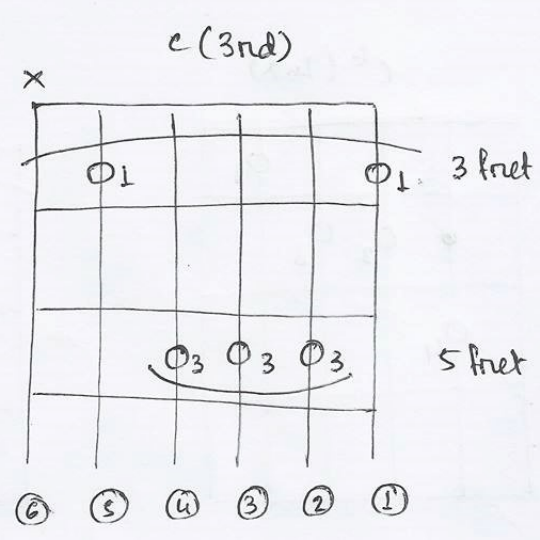 c (3rd)
x
1 1. 3 fret
3 3 3 5 fret
6 5 4 3 2 1